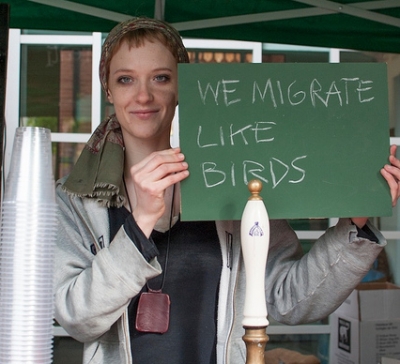 WE MIGRATE
LIKE
BIRDS